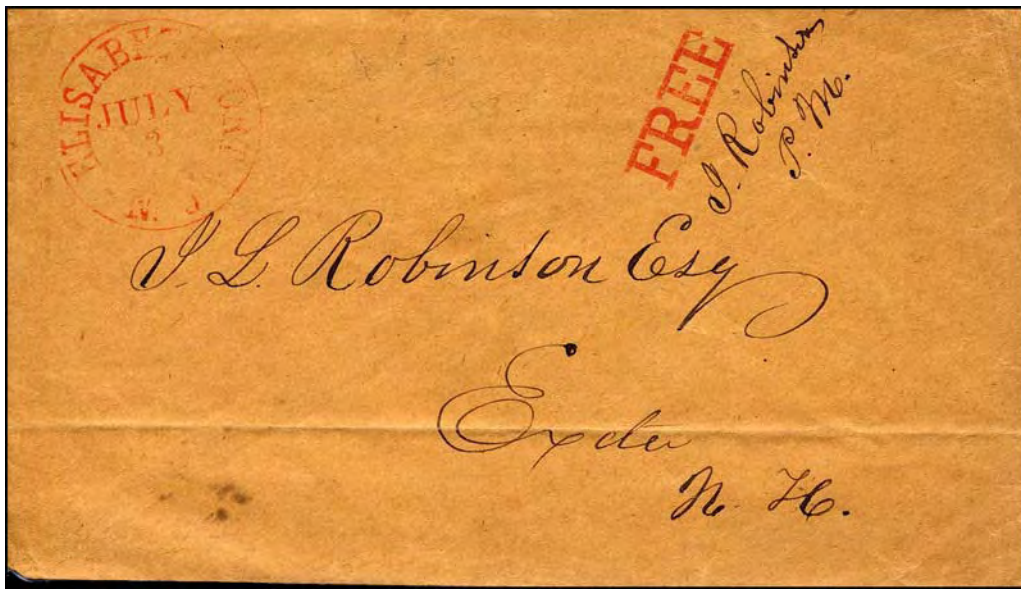 JULY
3
N. J.
FREE
J. Robinson
P. M.
J. L. Robinson Esq
Exeter
N. H.